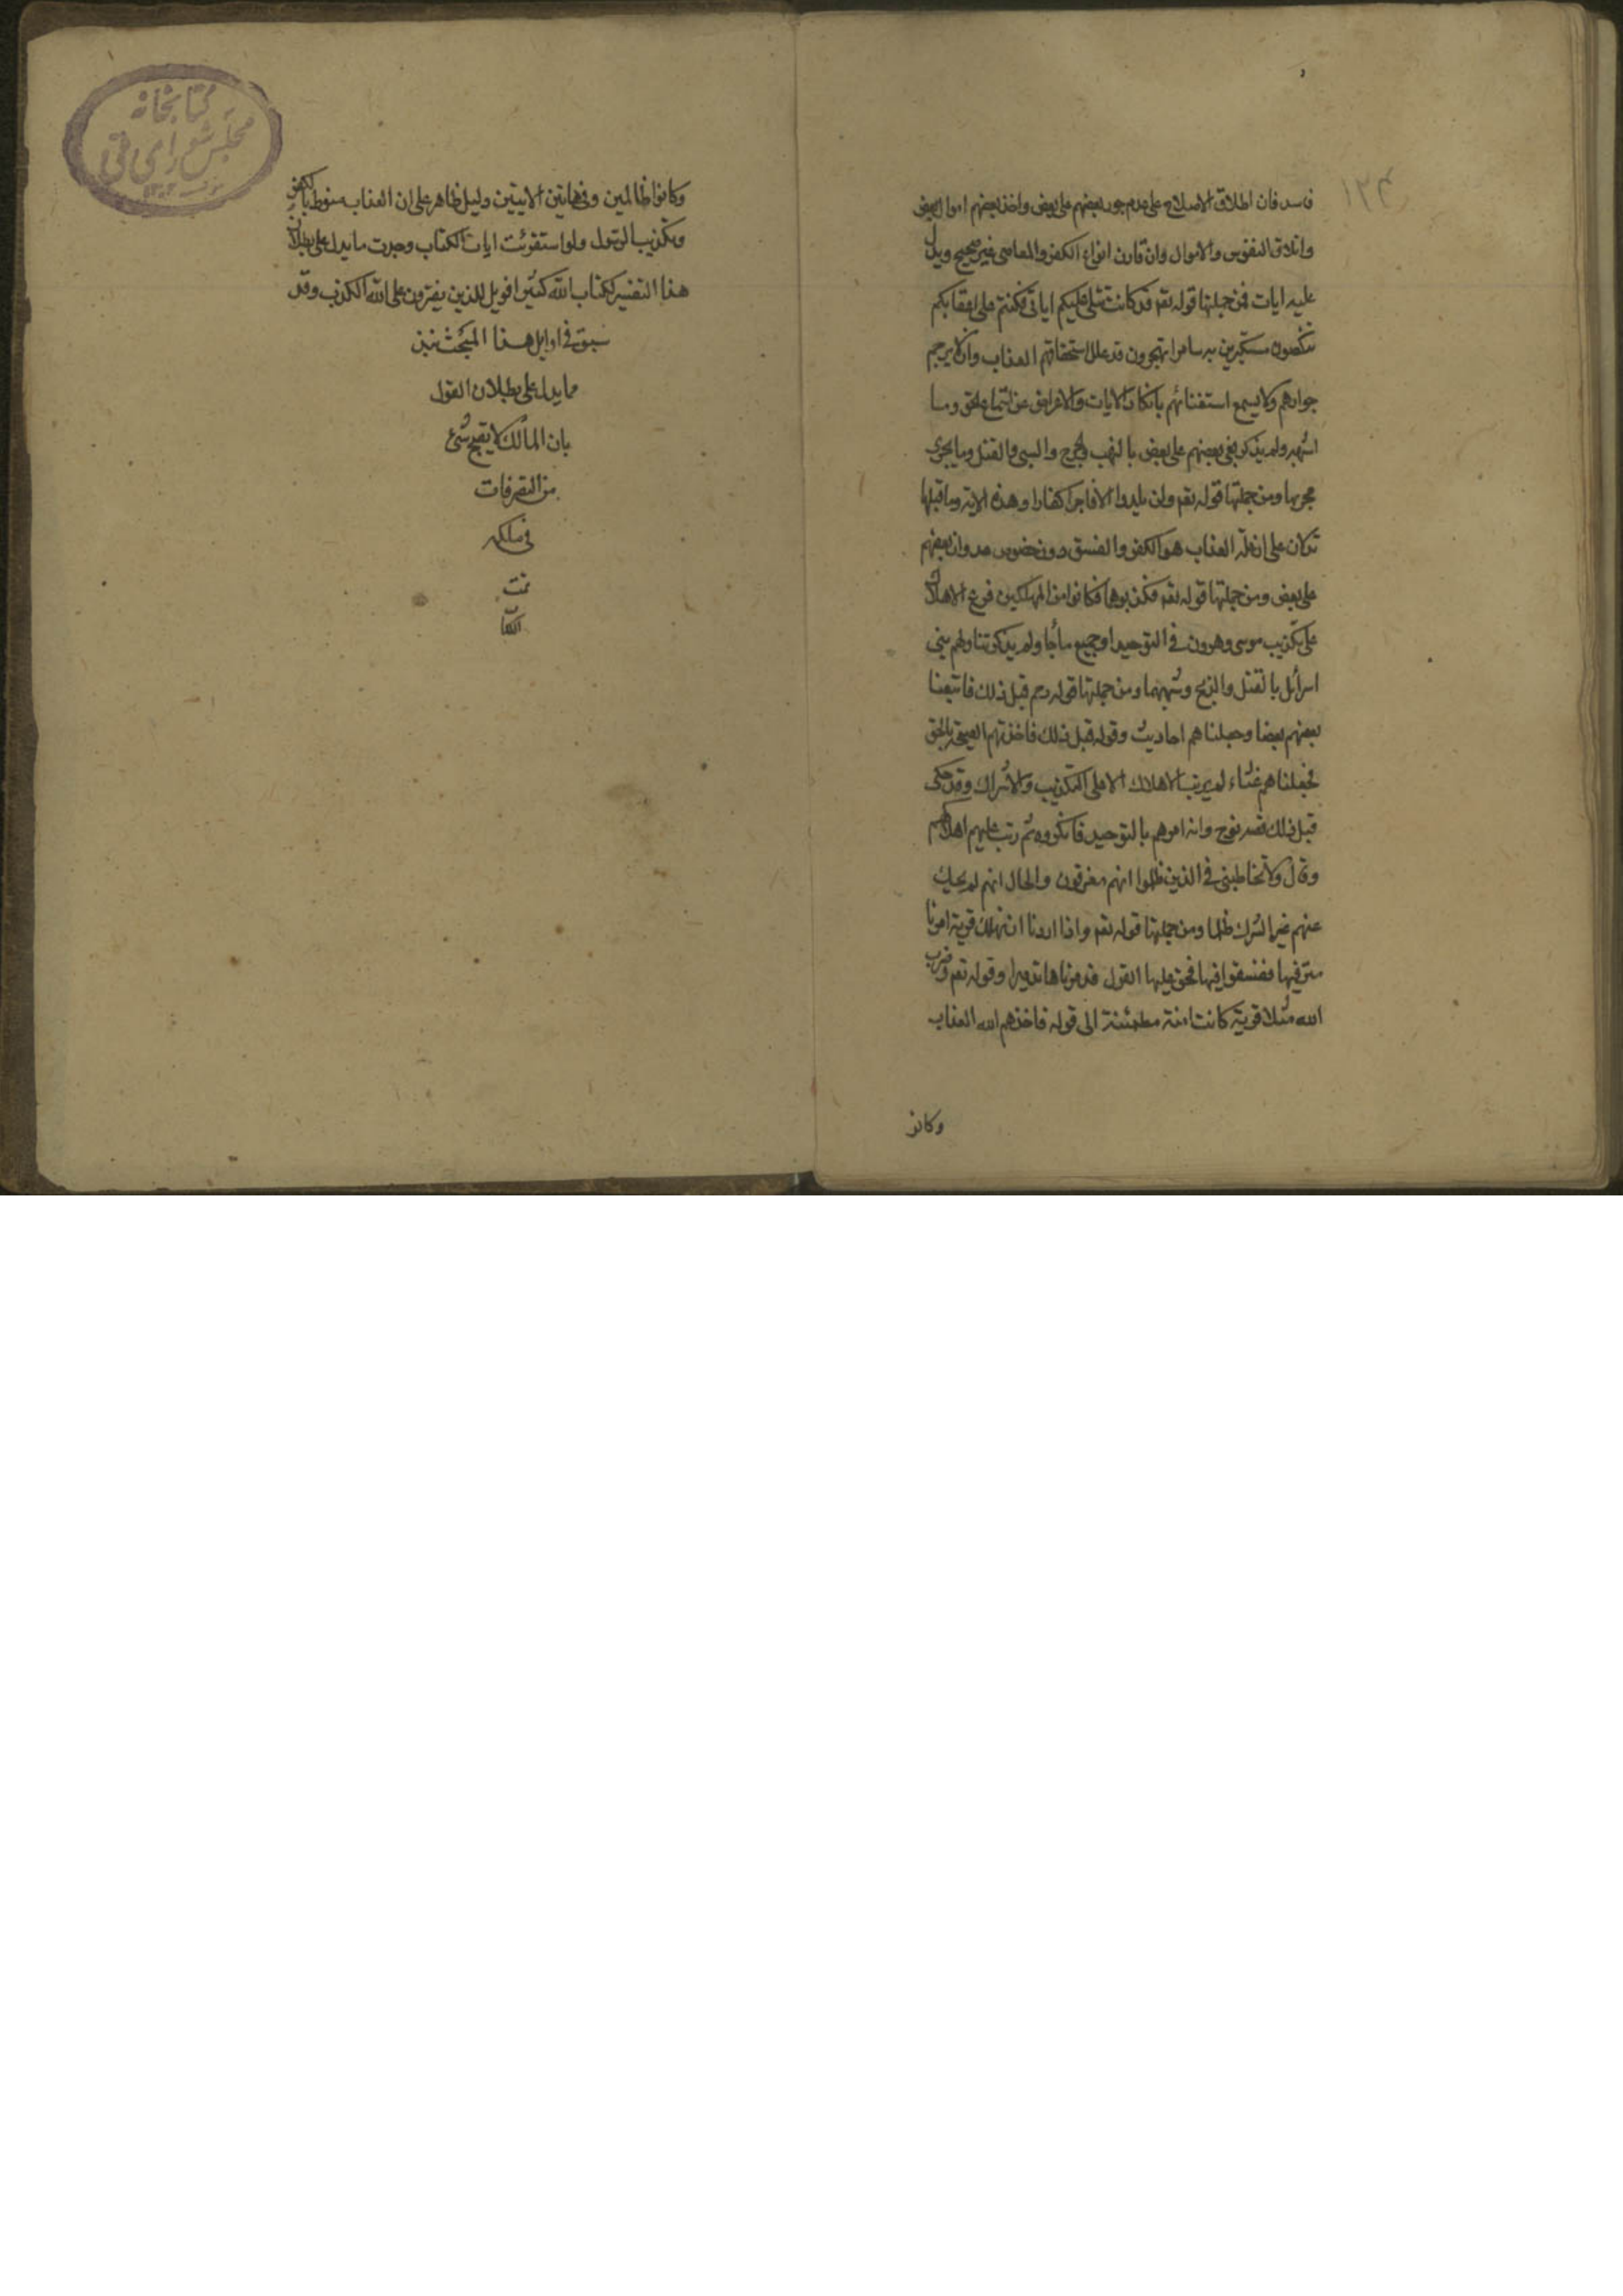 ١٢٤
فاسد فان اطلاق الاصلاح على عدم جور بعضهم على بعض واخذ بعضهم اموال بعض
واتلاف النفوس والاموال وان قارن انواع الكفر والمعاصى غير صحيح ويدل
عليه ايات فمن جملتها قوله تعم قد كانت تتلى عليكم اياتى فكنتم على اعقابكم
تنكصون مستكبرين به سامرا تهجرون قد علل استحقاقهم العذاب وان لا يرحم
جوارهم ولا يسمع استغناثهم بانكار الايات والاعراض عن استماع الحق وما
اشبهه ولم يذكر بغى بعضهم على بعض بالنهب والجرح والسبى والقتل وما يجرى
مجريها ومن جملتها قوله تعم ولن يلدوا الا فاجرا كفارا وهذه الاية وما قبلها
تدلان على ان علة العذاب هو الكفر والفسق دون خصوص عدوان بعضهم
على بعض ومن جملتها قوله تعم فكذبوهما فكانوا من المهلكين فرع الاهلاك
على تكذيب موسى وهرون فى التوحيد او جميع ما جاا ولم يذكر تناولهم بنى
اسرائل بالقتل والذبح وشبههما ومن جملتها قوله قبل ذلك فاتبعنا
بعضهم بعضا وجعلناهم احاديث وقوله قبل ذلك فاخذتهم الصيحة بالحق
فجعلناهم غثاء لم يرتب الاهلاك الا على التكذيب والاشراك وقد حكى
قبل ذلك قصه نوح وانه امرهم بالتوحيد فانكروه ثم رتب عليهم اهلاكهم
وقال ولا تخاطبنى فى الذين ظلموا انهم مغرقون والحال انهم لم يحك
عنهم غير الشرك ظلما ومن جملتها قوله تعم واذا اردنا ان نهلك قرية امرنا
مترفيها ففسقوا فيها فحق عليها القول فدمرناها تدميرا وقوله تعم وضرب
الله مثلا قرية كانت امنة مطمئنة الى قوله فاخذهم الله العذاب
وكانو
كتابخانه
مجلس شوراى ملى
وكانوا ظالمين وفى هاتين الايتين دليل ظاهر على ان العذاب منوط بالكفر
وتكذيب الرسول ولو استقرئت ايات الكتاب وجدت ما يدل على بطلان
هذا التفسير لكتاب الله كثيرا فويل للذين يفترون على الله الكذب وقد
سبق فى اوايل هذا المبحث نبذ
مما يدل على بطلان القول
بان المالك لا يقبح شئ
من التصرفات
فى ملكه
تمت
الكتا